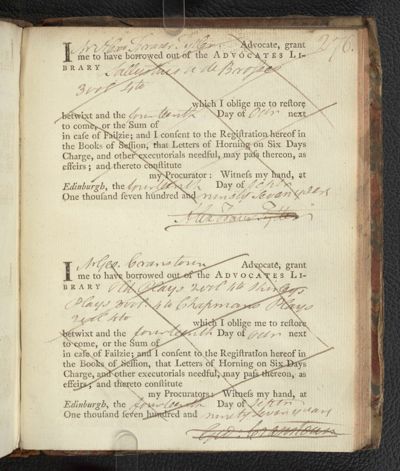 276.
I Mr Alexr Fraser Tytler Advocate, grant
me to have borrowed out of the ADVOCATES LI-
BRARY Sallustius a de Brosses
3 vols 4to
which I oblige me to restore
betwixt and the fourteenth Day of next
to come, or the Sum of
in case of Failzie; and I consent to the Registration hereof in
the Books of Session, that Letters of Horning on Six Days
Charge, and other executorials needful, may pass thereon, as
effeirs; and thereto constitute
my Procurator: Witness my hand, at
Edinburgh, the fourteenth Day of
One thousand seven hundred and ninety seven years
Alex Fraser Tytler
I Mr Geo. Cranstoun Advocate, grant
me to have borrowed out of the ADVOCATES LI-
BRARY Old Plays vol 4to
Plays vol 4to Chapmans Plays
vol 4to
which I oblige me to restore
betwixt and the fourteenth Day of next
to come, or the Sum of
in case of Failzie; and I consent to the Registration hereof in
the Books of Session, that Letters of Horning on Six Days
Charge, and other executorials needful, may pass thereon, as
effeirs; and thereto constitute
my Procurator: Witness my hand, at
Edinburgh, the fourteenth Day of
One thousand seven hundred and ninety seven years
Geo. Cranstoun